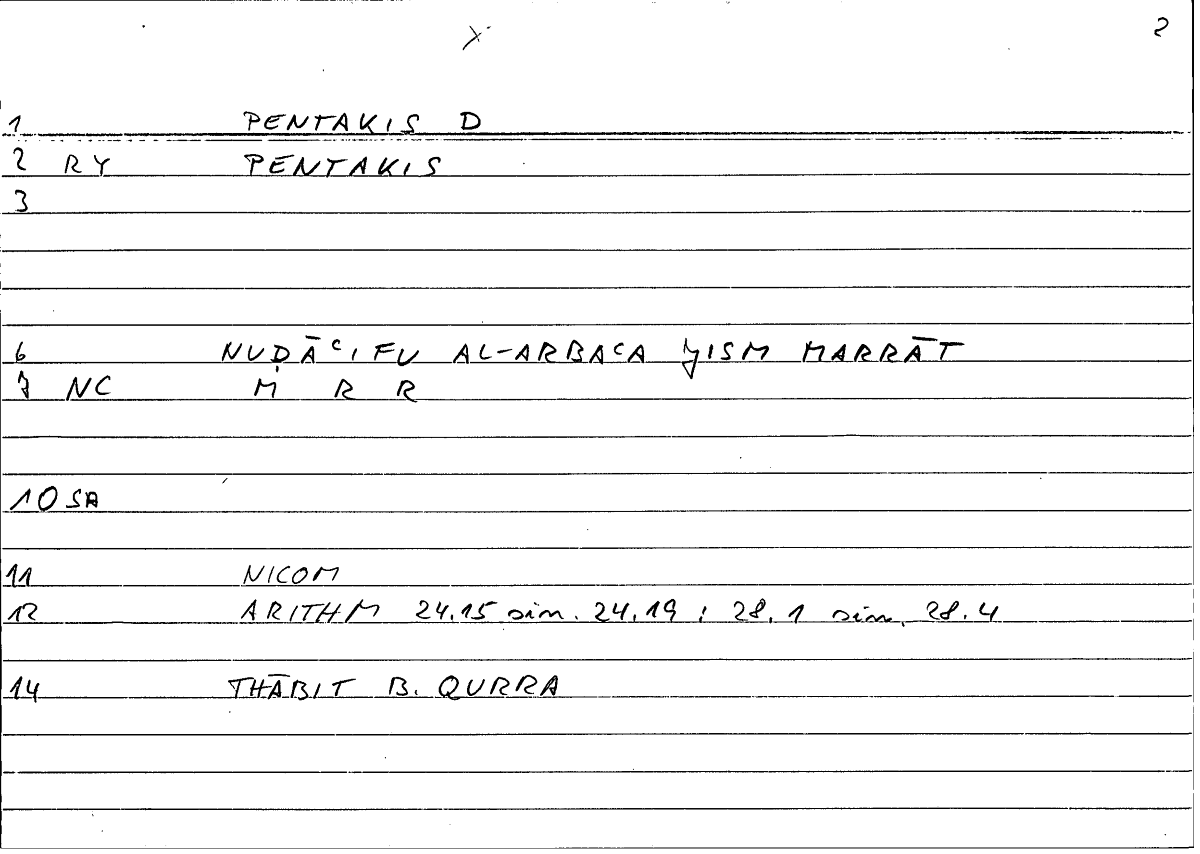 2
1 PENTAKIS D
2 RY PENTAKIS
3
6 NUḌĀꜤIFU AL-ARBAꜤA ḪISM MARRĀT
7 NC M R R
10 SA
11 NICOM
12 ARITHM 24.15 sim. 24.19 ; 28.1 sim. 28.4
14 THĀBIT B. QURRA